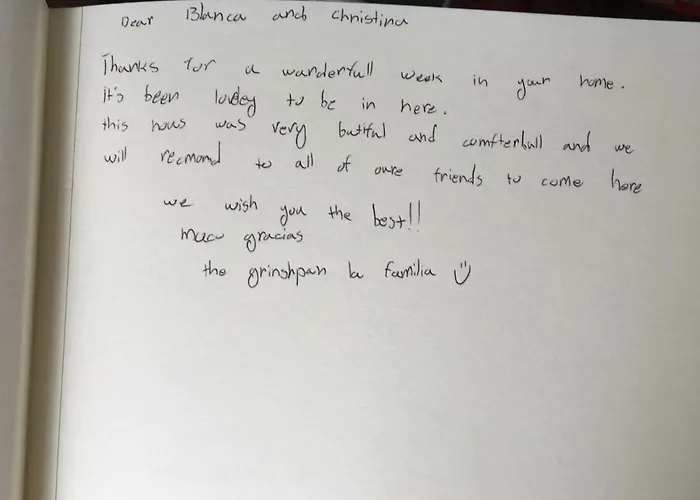 Dear Blanca and christina
Thanks for a wanderfull week in your home.
it's been lovley to be in here.
this hous was very butiful and comfterbull and we
will recmond to all of oure friends to come here
we wish you the best!!
mucu gracias
the grinshpan la familia